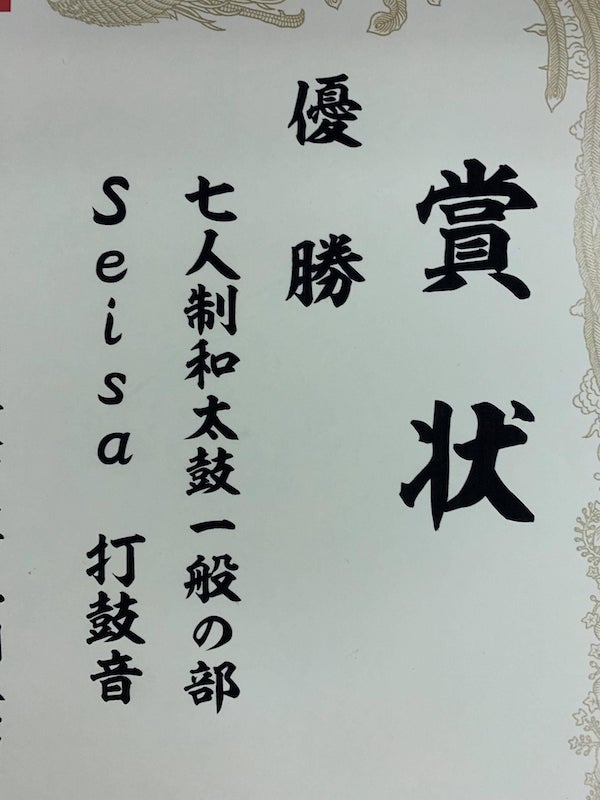 賞状
優勝
七人制和太鼓一般の部
Seisa 打鼓音